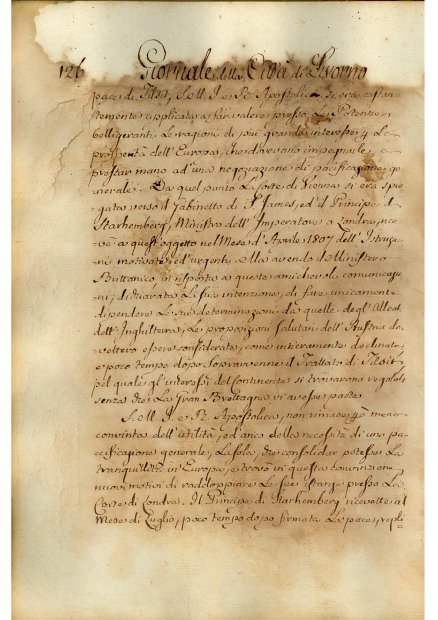 126 Giornale della Città di Livorno
pace di Tilsit, S. M. I. e R. Apostolica si era costan-
temente applicata a far valere presso le Potenze
belligeranti le ragioni di più grande interesse, e le
prosperità dell'Europa, che dovevano impegnarle, a
prestar mano ad una negoziazione di pacificazione ge-
nerale. Da quel punto la Corte di Vienna si era spie-
gata verso il Gabinetto di S. James, ed il Principe di
Starhemberg, Ministro dell'Imperatore a Londra, rice-
vè a quest'oggetto nel Mese d'Aprile 1807 dell'Istruzio
motivate, ed urgenti. Ma avendo il Ministero
Brittanico, in risposta a queste amichevoli comunicazio
ni, dichiarata la sua intenzione, di fare unicamente
dipendere le sue determinazioni da quelle degl'Alleati
dell'Inghilterra, le proposizioni salutari dell'Austria do-
vettero essere considerate, come intieramente declinate
e poco tempo dopo sopravvenne il Trattato di Tilsit,
pel quale gl'interessi del Continente si trovarono regolati,
senza che la Gran Brettagna vi avesse parte.
S. M. I. e R. Apostolica, non rimase meno
convinta dell'utilità, ed anco della necessità di una pa-
cificazione generale, la sola, che consolidar potesse la
tranquillità in Europa, e trovò in questa convinzione
nuovi motivi di raddoppiare le sue istanze presso la
Corte di Londra. Il Principe di Starhemberg ricevette al
Mese di Luglio, poco tempo dopo firmata la pace, repli-